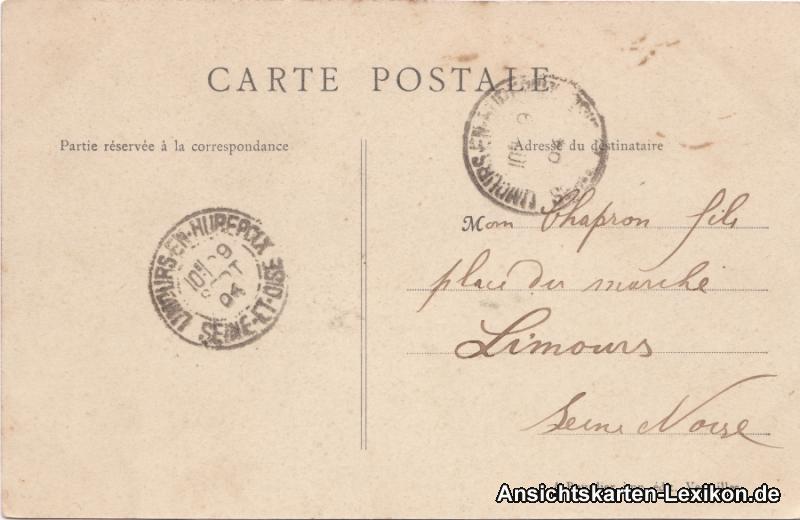 CARTE POSTALE
Partie réservée à la correspondance
Adresse du destinataire
LIMOURS-EN-HUREPOIX
SEINE-ET-OISE
LIMOURS-EN-HUREPOIX
9
04
Mon Chapron fils
place du marche
Limours
Seine Noise
imp. édit. Versailles
Ansichtskarten-Lexikon.de